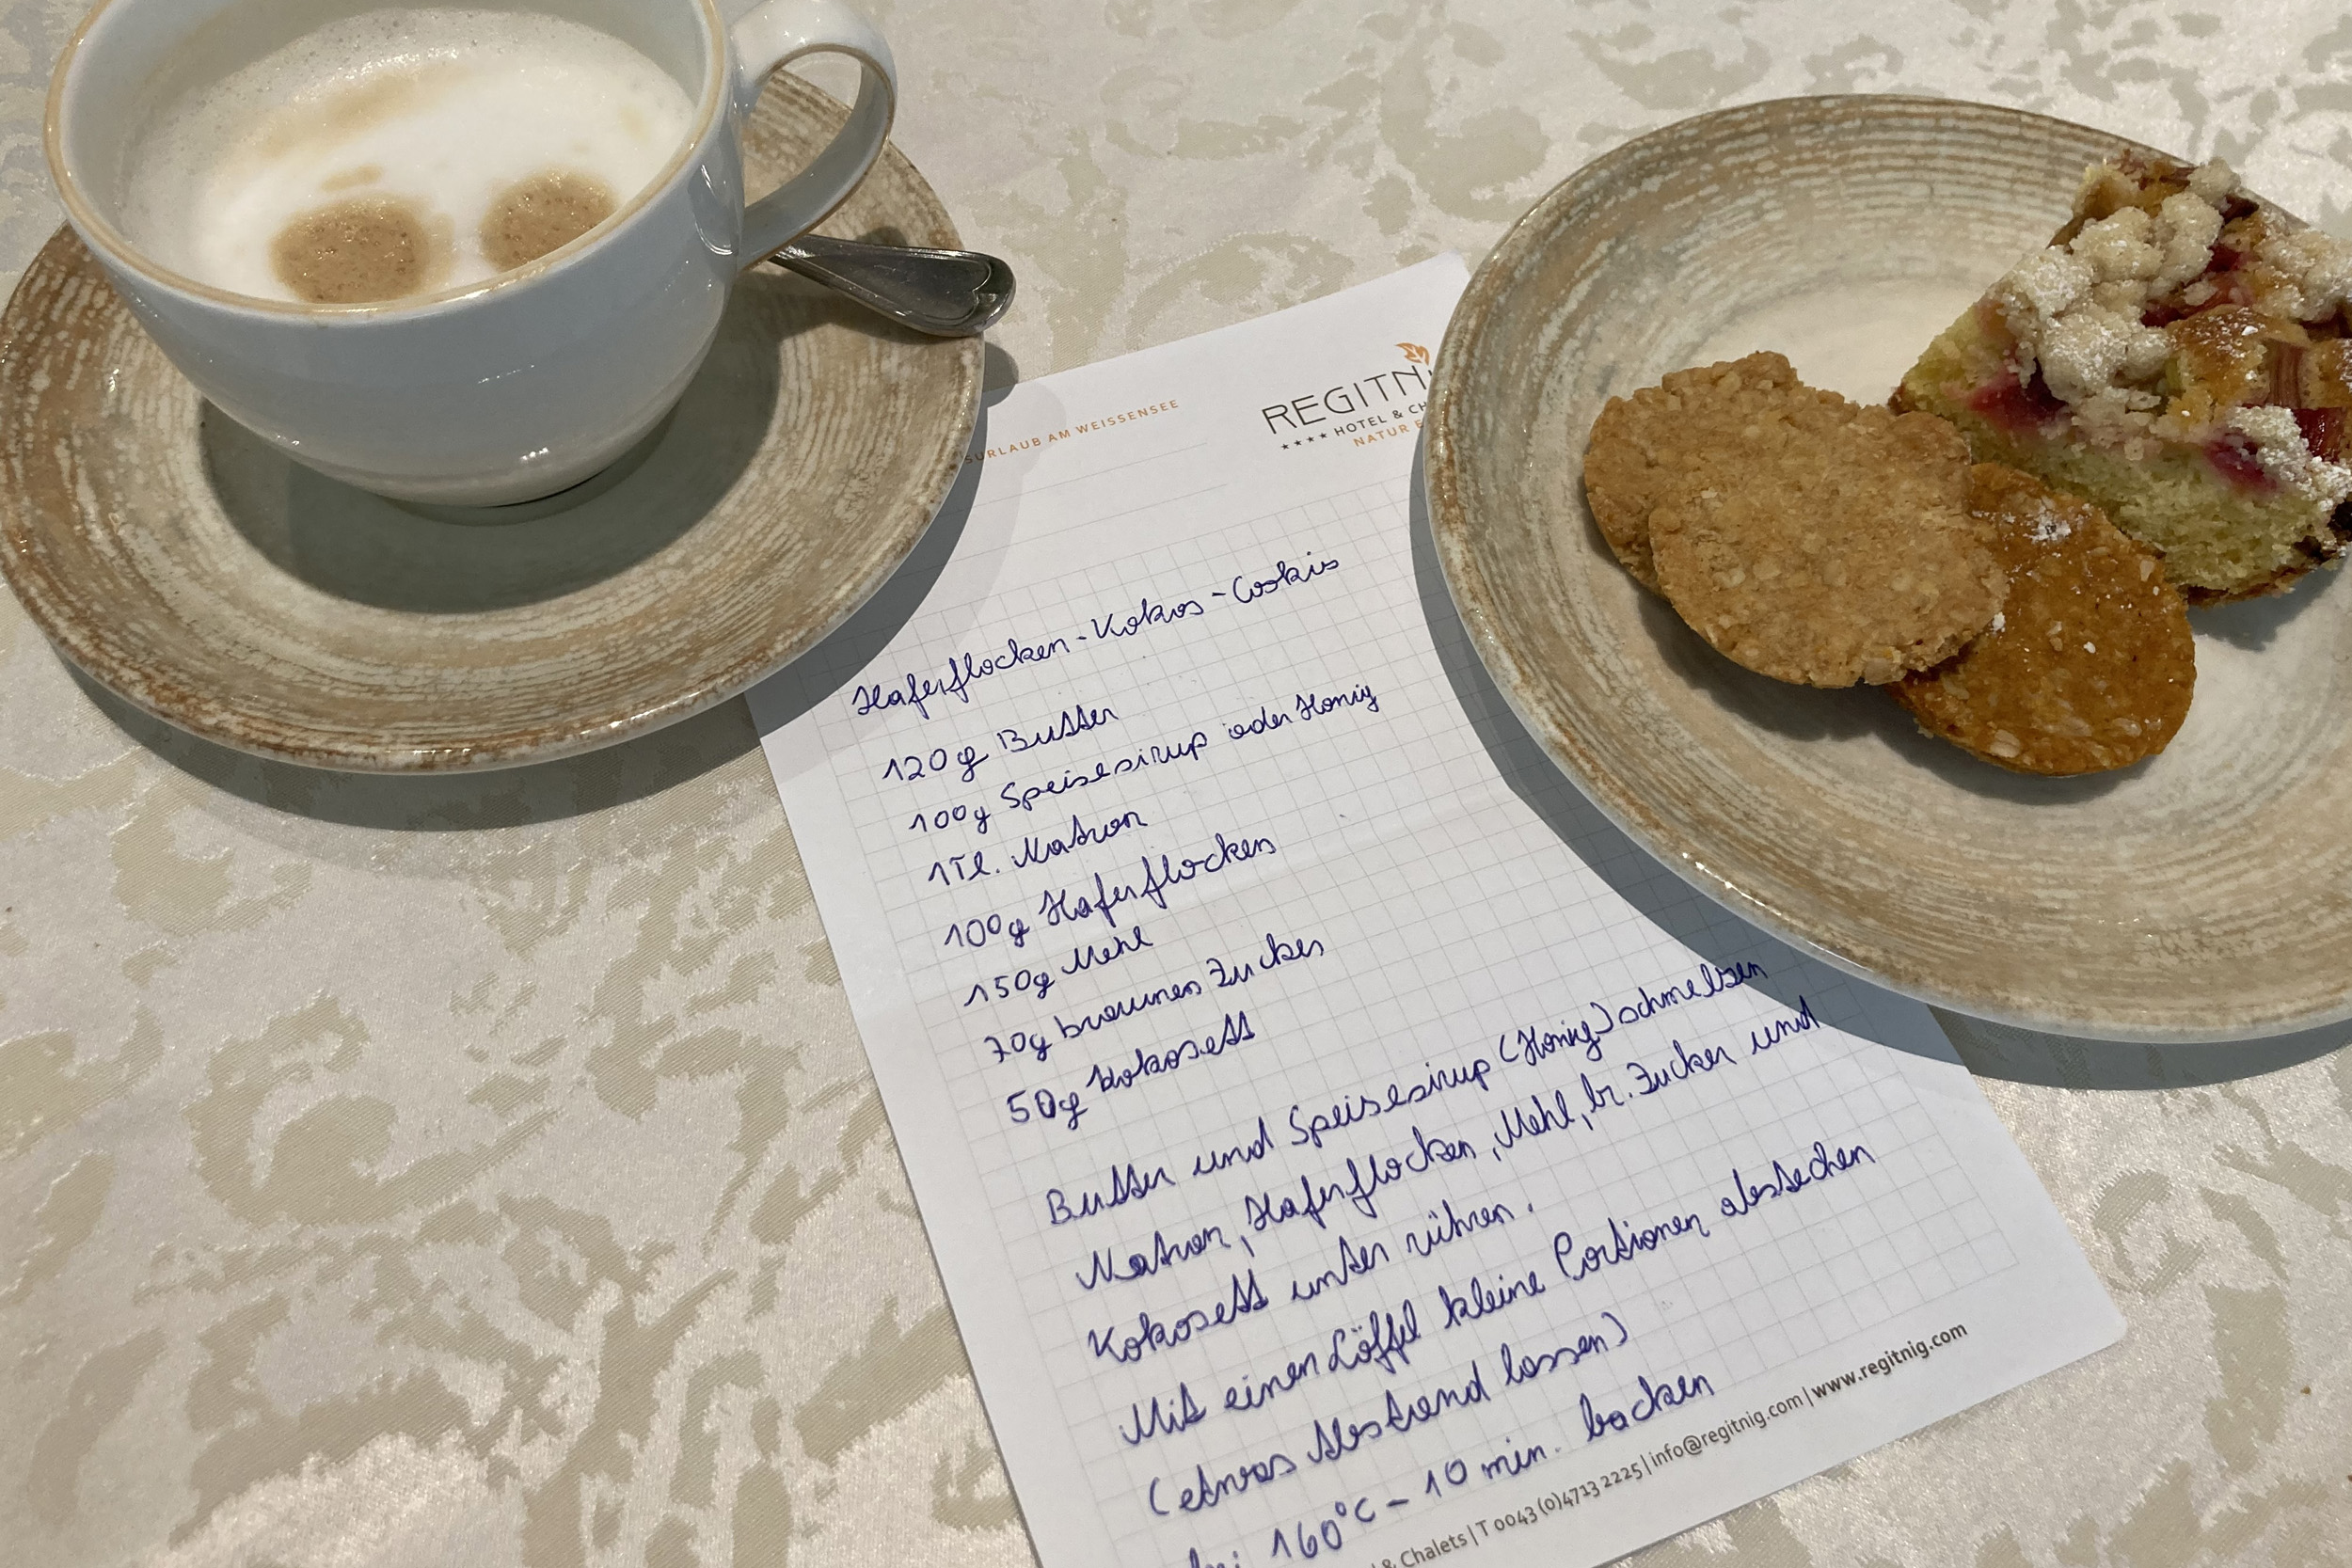 SURLAUB AM WEISSENSEE
REGITN
**** HOTEL & CH
NATUR E
Haferflocken-Kokos-Cookis
120g Butter
100g Speisesirup oder Honig
1Tl. Natron
100g Haferflocken
150g Mehl
70g braunen Zucker
50g Kokosett
Butter und Speisesirup (Honig) schmelzen
Natron, Haferflocken, Mehl, br. Zucker und
Kokosett unter rühren.
Mit einen Löffel kleine Portionen abstechen
(etwas Abstand lassen)
bei 160°C - 10 min. backen
& Chalets | T 0043 (0)4713 2225 | info@regitnig.com | www.regitnig.com